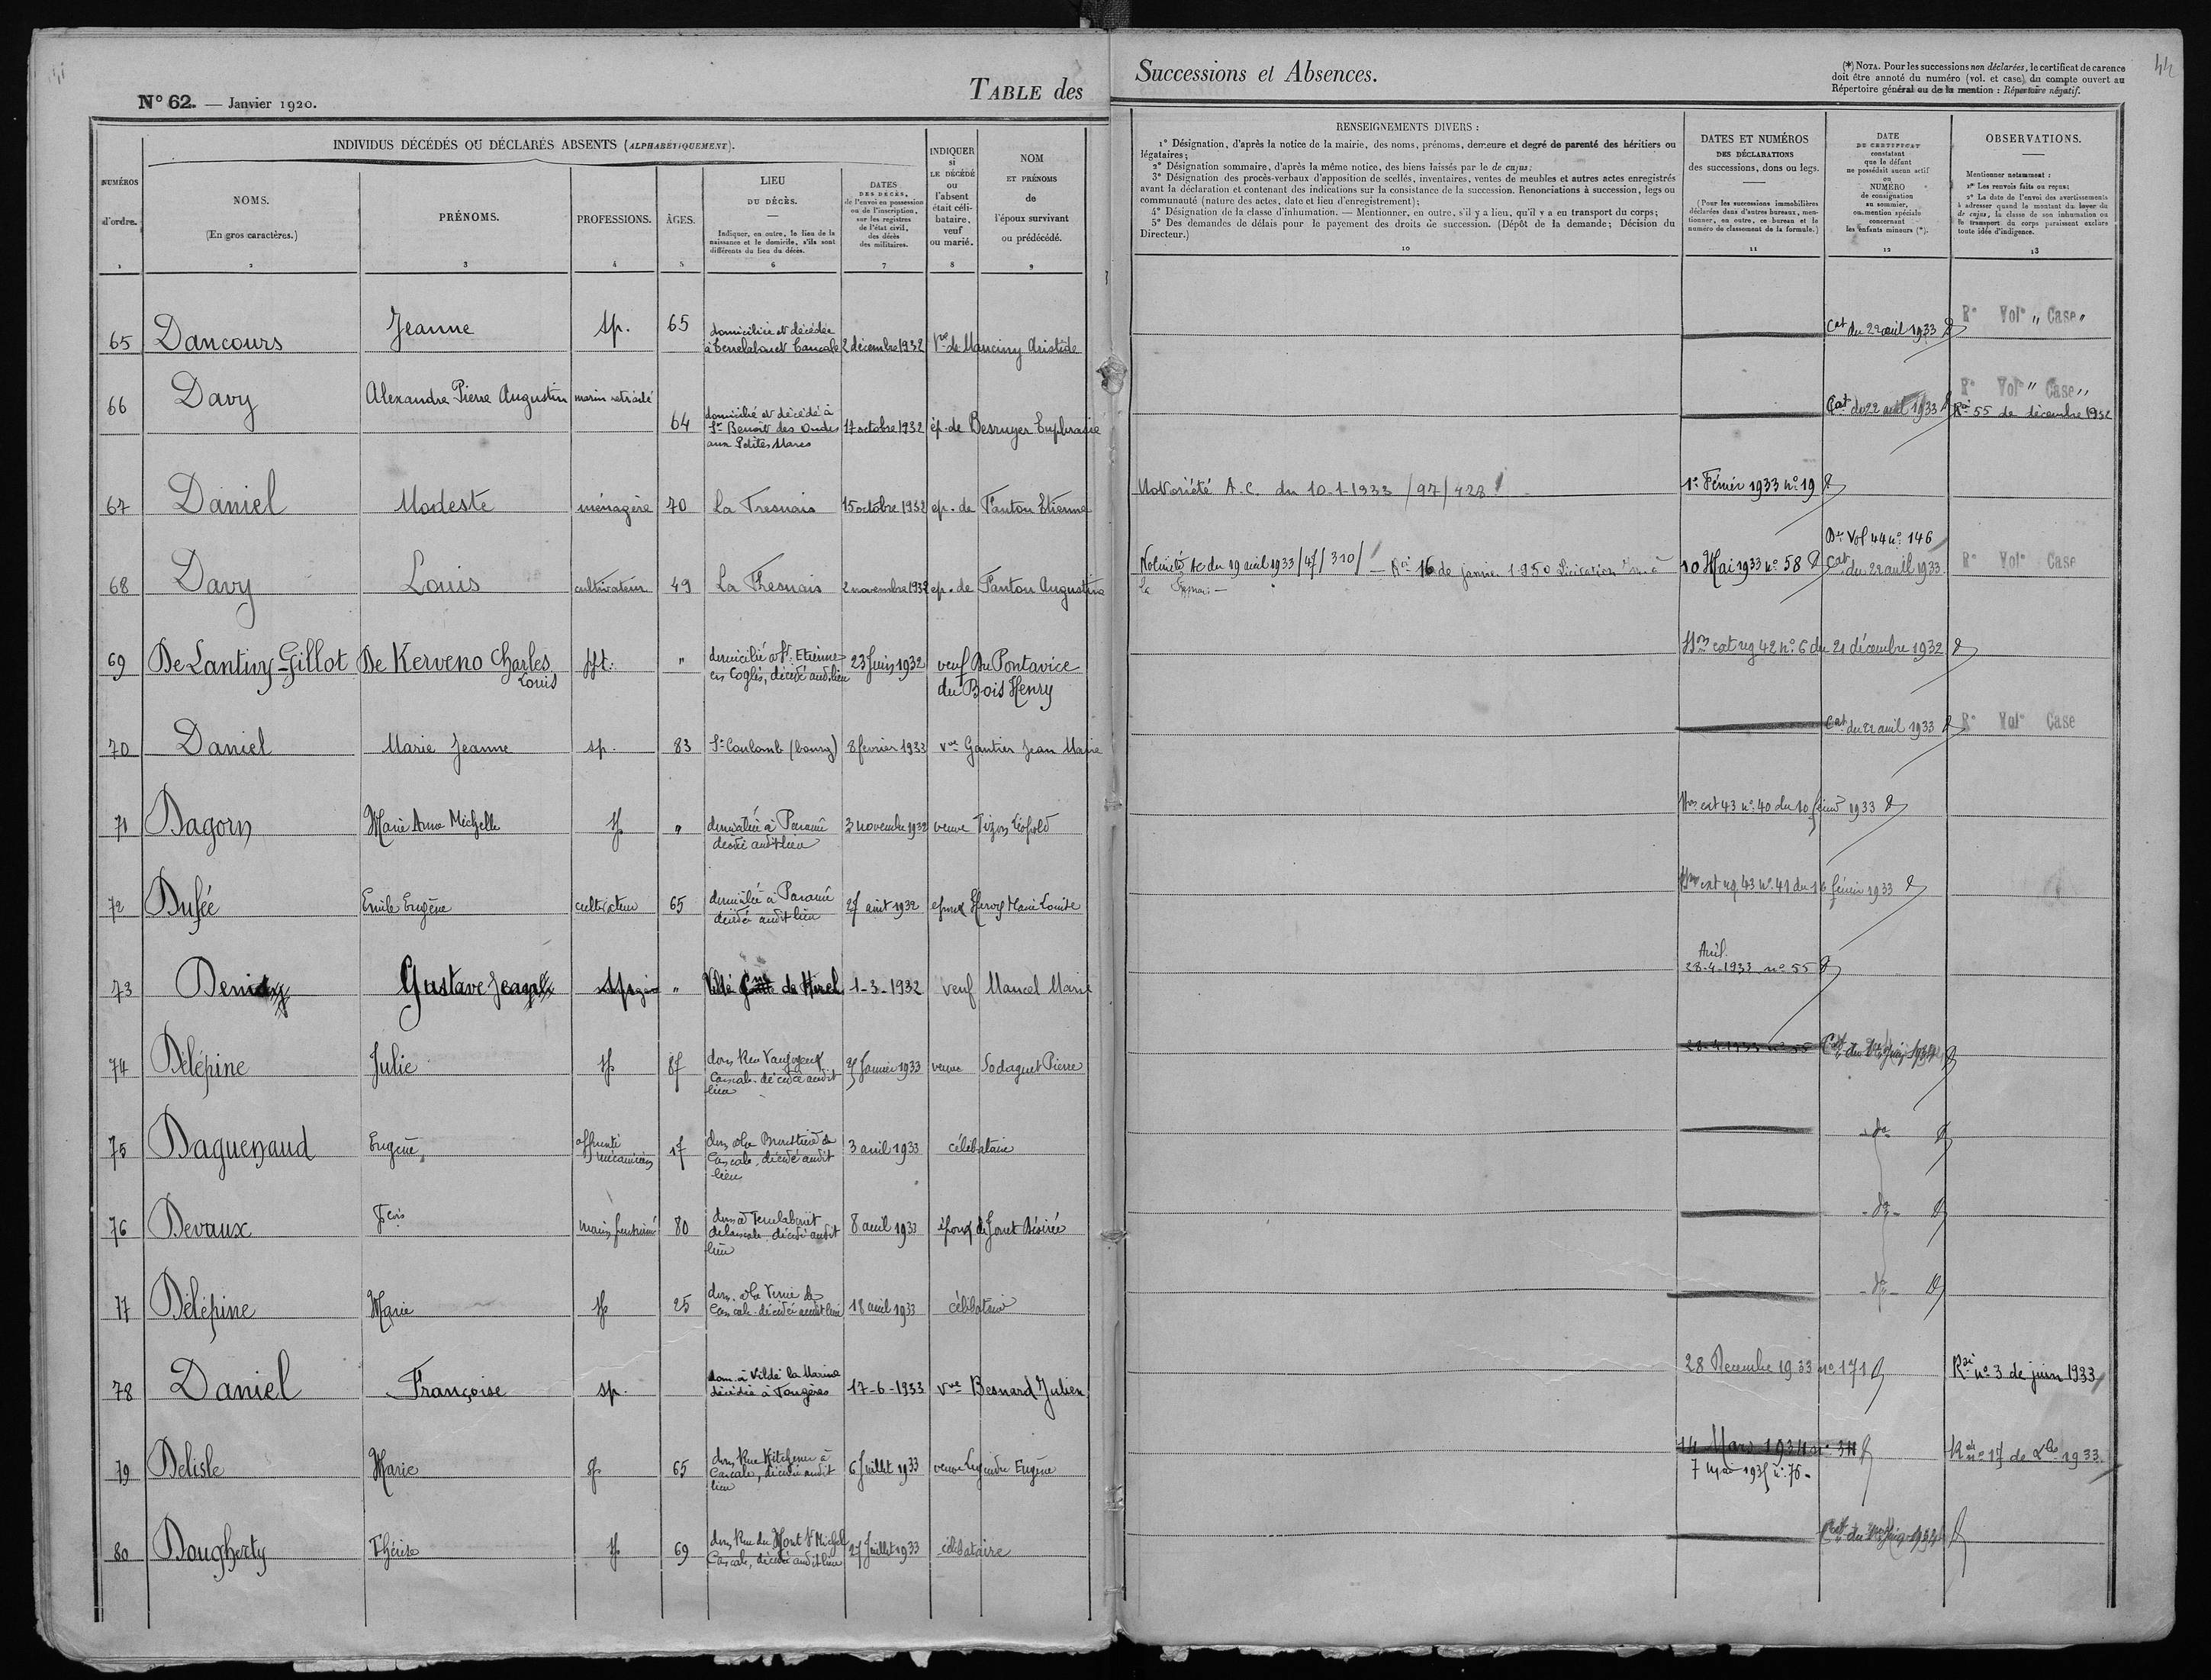 44
N° 62. — Janvier 1920.
TABLE des
Successions et Absences.
(*) NOTA. Pour les successions non déclarées, le certificat de carence
doit être annoté du numéro (vol. et case) du compte ouvert au
Répertoire général ou de la mention : Répertoire négatif.
NUMÉROS
d'ordre.
1
INDIVIDUS DÉCÉDÉS OU DÉCLARÉS ABSENTS (ALPHABÉTIQUEMENT).
NOMS.
(En gros caractères.)
2
PRÉNOMS.
3
PROFESSIONS.
4
ÂGES.
5
LIEU
DU DÉCÈS.
Indiquer, en outre, le lieu de la
naissance et le domicile, s'ils sont
différents du lieu du décès.
6
DATES
DES DÉCÈS,
de l'envoi en possession
ou de l'inscription,
sur les registres
de l'état civil,
des décès
des militaires.
7
INDIQUER
si
LE DÉCÉDÉ
ou
l'absent
était céli-
bataire,
veuf
ou marié.
8
NOM
ET PRÉNOMS
de
l'époux survivant
ou prédécédé.
9
RENSEIGNEMENTS DIVERS :
1° Désignation, d'après la notice de la mairie, des noms, prénoms, demeure et degré de parenté des héritiers ou
légataires;
2° Désignation sommaire, d'après la même notice, des biens laissés par le de cujus;
3° Désignation des procès-verbaux d'apposition de scellés, inventaires, ventes de meubles et autres actes enregistrés
avant la déclaration et contenant des indications sur la consistance de la succession. Renonciations à succession, legs ou
communauté (nature des actes, date et lieu d'enregistrement);
4° Désignation de la classe d'inhumation. — Mentionner, en outre, s'il y a lieu, qu'il y a eu transport du corps;
5° Des demandes de délais pour le payement des droits de succession. (Dépôt de la demande; Décision du
Directeur.)
10
DATES ET NUMÉROS
DES DÉCLARATIONS
des successions, dons ou legs.
(Pour les successions immobilières
déclarées dans d'autres bureaux, men-
tionner, en outre, ce bureau et le
numéro de classement de la formule.)
11
DATE
DU CERTIFICAT
constatant
que le défunt
ne possédait aucun actif
ou
NUMÉRO
de consignation
au sommier,
ou mention spéciale
concernant
les enfants mineurs (*).
12
OBSERVATIONS.
Mentionner notamment :
1° Les renvois faits ou reçus;
2° La date de l'envoi des avertissements
à adresser quand le montant du loyer du
de cujus, la classe de son inhumation ou
le transport du corps paraissent exclure
toute idée d'indigence.
13
65 Dancours Jeanne sp. 65 domiciliée et décédée
à Terrelabouet Cancale 2 décembre 1932 Vve de Manciny Aristide Cat du 22 avril 1933 Re Vol° " Case "
66 Davy Alexandre Pierre Augustin marin retraité 64 domicilié et décédé à
St Benoit des Ondes
aux Petites Mares 17 octobre 1932 ép. de Desruyer Euphrasie Cat du 22 avril 1933 Re Vol° " Case "
Roi 55 de décembre 1932
67 Daniel Modeste ménagère 70 La Fresnais 15 octobre 1932 ép. de Panton Etienne Notoriété A.C. du 10-1-1933 /97/428 1er Février 1933 n° 19
68 Davy Louis cultivateur 49 La Fresnais 2 novembre 1932 ép. de Panton Augustine Notoriété AC du 19 avril 1933/47/310/ — Roi 16 de janvier 1950 Licitation
10 Mai 1933 n° 58 Vol 44 n° 146
Cat du 22 avril 1933 Re Vol° Case
69 De Lantivy-Gillot De Kerveno Charles
Louis ppt. " domicilié à St Etienne
en Coglès, décédé aud. lieu 23 Juin 1932 veuf Du Pontavice
du Bois Henry ext reg 42 n° 6 du 21 décembre 1932
70 Daniel Marie Jeanne sp. 83 St Coulomb (bourg) 8 février 1933 Vve Gautier Jean Marie Cat du 22 avril 1933 Re Vol° Case
71 Dagorn Marie Anne Michelle sp " domiciliée à Paramé
décédé audit lieu 3 novembre 1932 veuve Tizon Léopold ext 43 n° 40 du 10 février 1933
72 Dufée Emile Eugène cultivateur 65 domicilié à Paramé
décédé audit lieu 27 août 1932 époux Hervy Marie Louise ext reg 43 n° 41 du 16 février 1933
73 Gustave Jean " Vildé de Hirel 1-3-1932 veuf Mancel Marie Avril
28-4-1933 n° 55
74 Délépine Julie sp 87 Cancale décédée audit
lieu Janvier 1933 veuve Sodaguet Pierre 28-4-1933 n° 55
75 Daguenaud Eugène apprenti
mécanicien 17 Cancale, décédé audit
lieu 3 avril 1933 célibataire d°
76 Devaux Fçois marin pensionné 80 dom à Terrelabouet
de Cancale, décédé audit
lieu 8 avril 1933 époux de Jouet Désirée d°
77 Délépine Marie sp 25 dom. à la Verrie de
Cancale décédée audit lieu 18 avril 1933 célibataire d°
78 Daniel Françoise sp. dom. à Vildé la Marine
décédée à Fougères 17-6-1933 Vve Besnard Julien 28 Decembre 1933 n° 171 Roi n° 3 de juin 1933
79 Delisle Marie sp 65 dom Rue Kitchener à
Cancale, décédée audit
lieu 6 Juillet 1933 veuve Legendre Eugène 14 Mars 1934 n° 311
7 1935 n° 76 Roi n° 17 de Xbre 1933
80 Dougherty Thérèse sp 69 dom Rue du Mont St Michel
Cancale, décédée audit lieu 27 Juillet 1933 célibataire